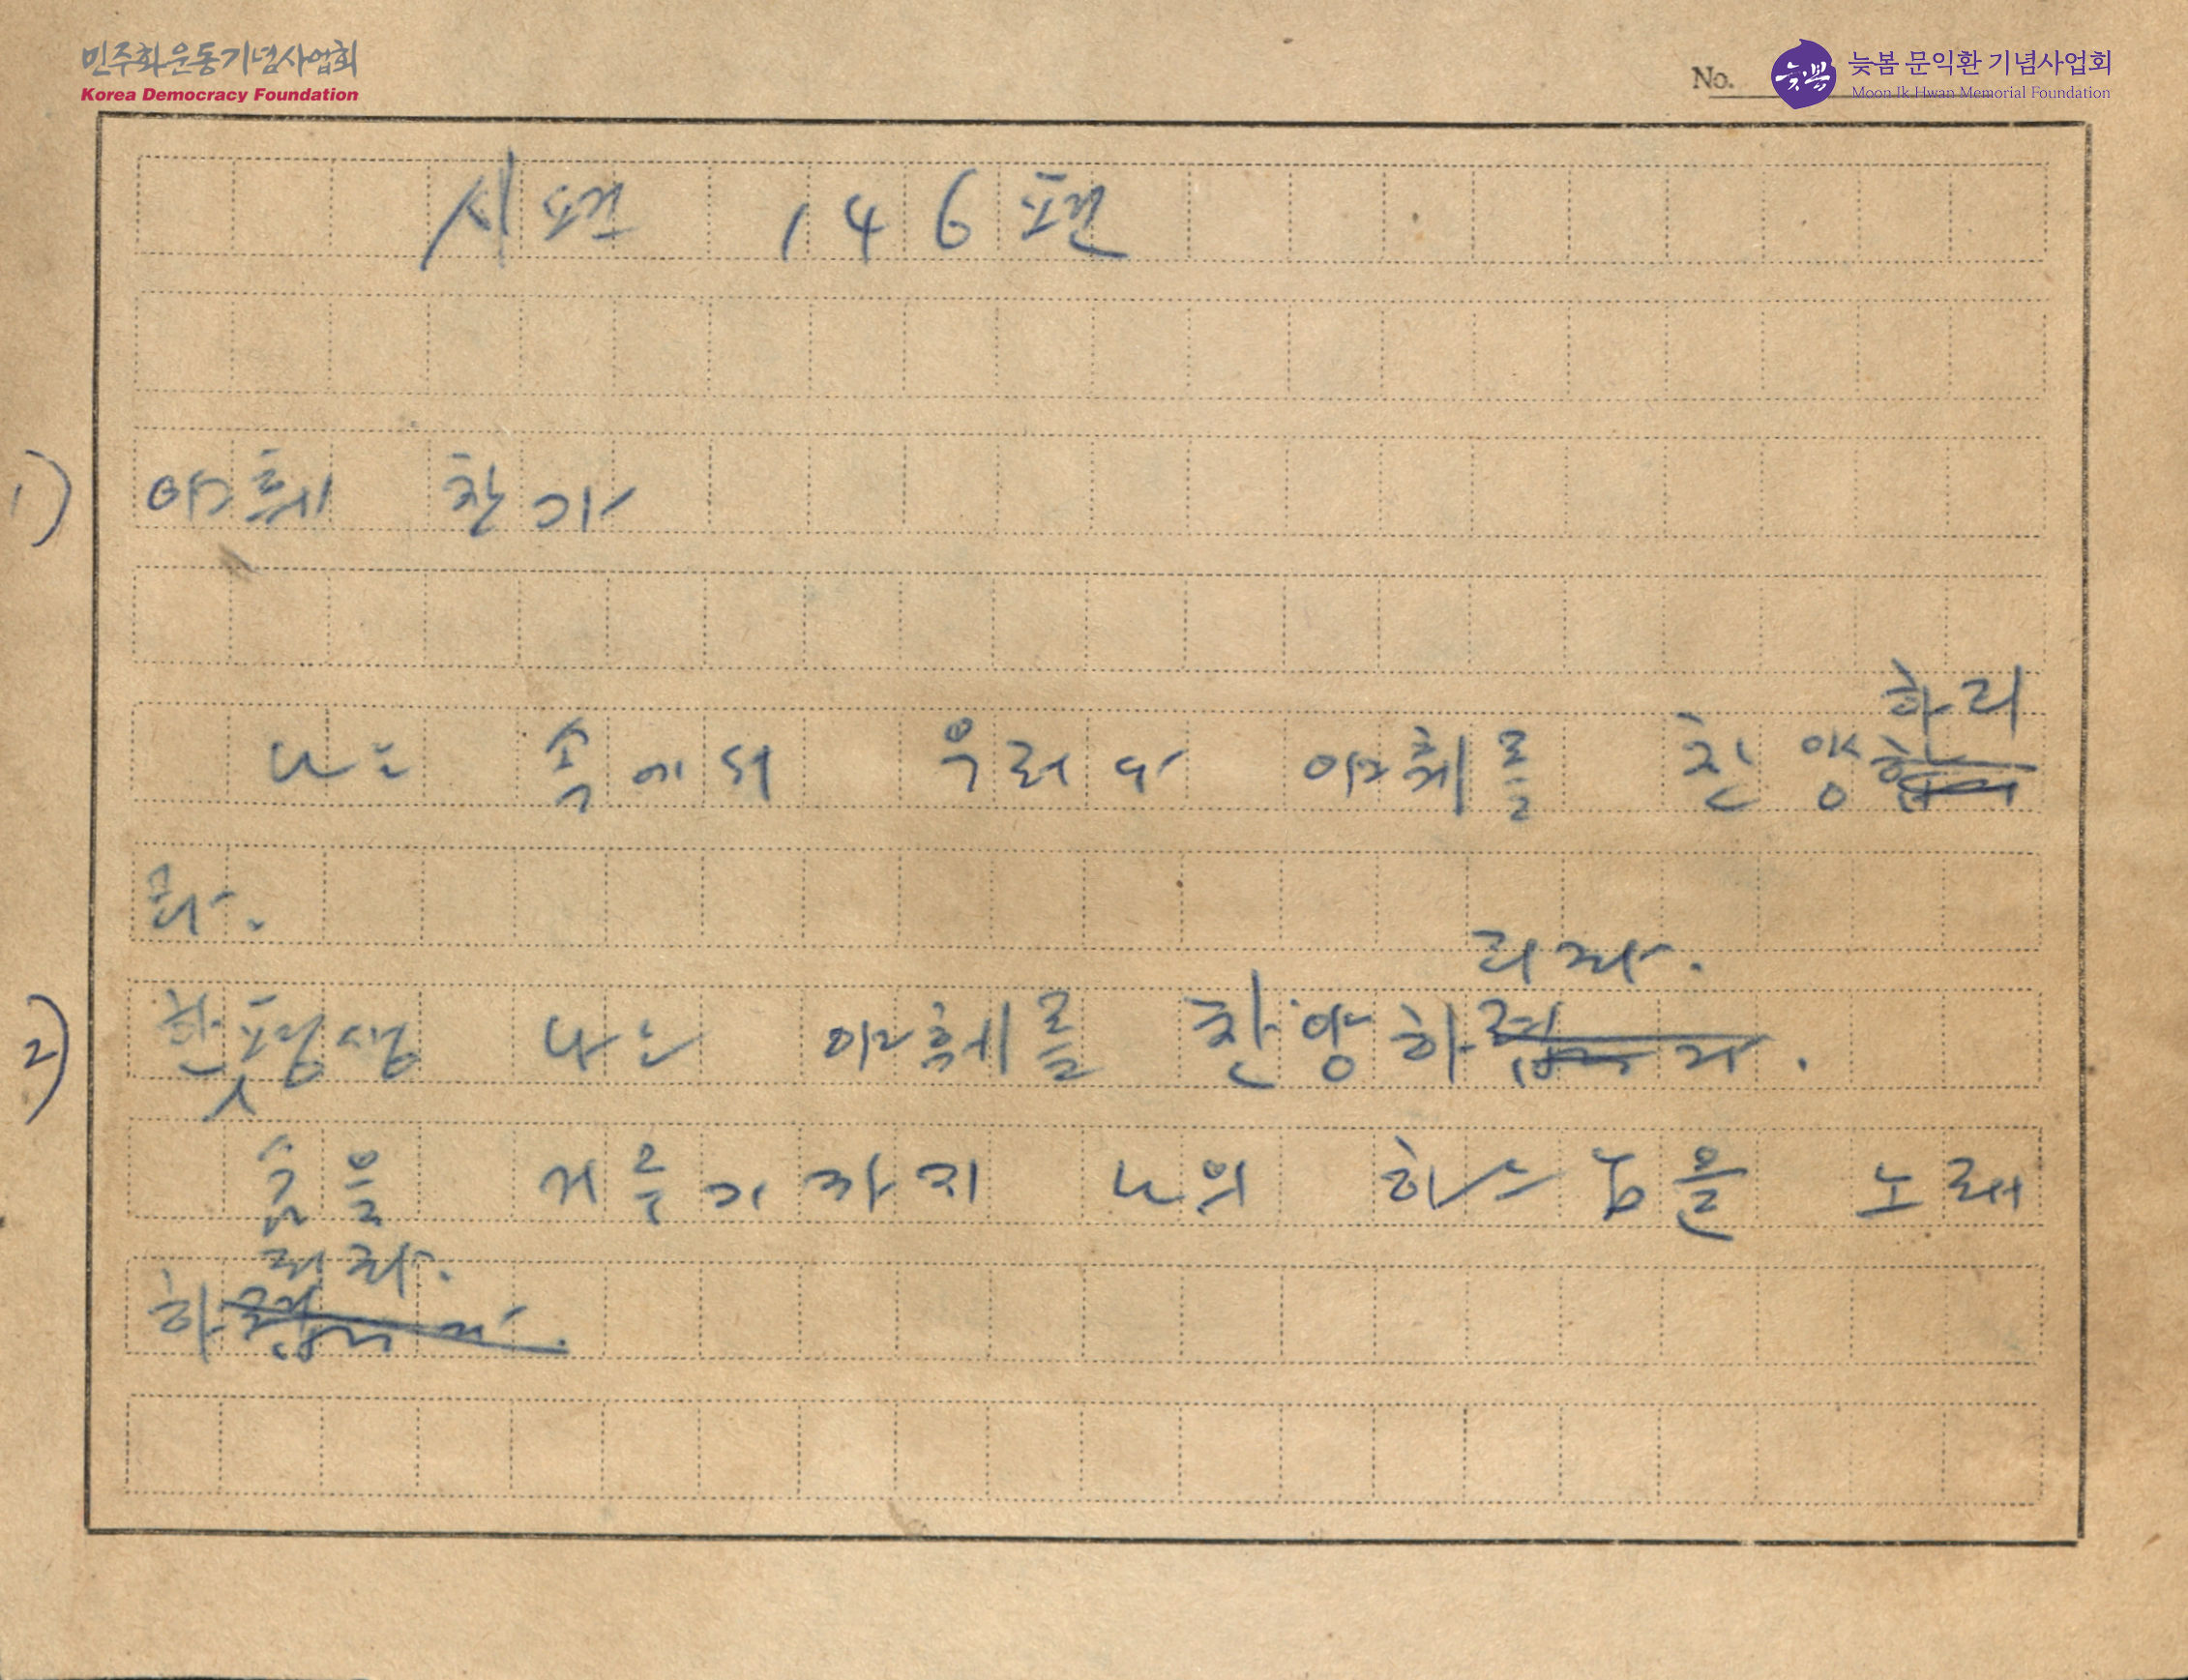 민주화운동기념사업회
Korea Democracy Foundation
No.
늦봄
늦봄 문익환 기념사업회
Moon Ik Hwan Memorial Foundation
시편 146편
1) 야훼 찬가
하리
나는 속에서 우러나 야훼를 찬양
라.
리라.
2) 한평생 나는 야훼를 찬양하렵니다.
숨을 거두기까지 나의 하느님을 노래
리라.
하렵니다.